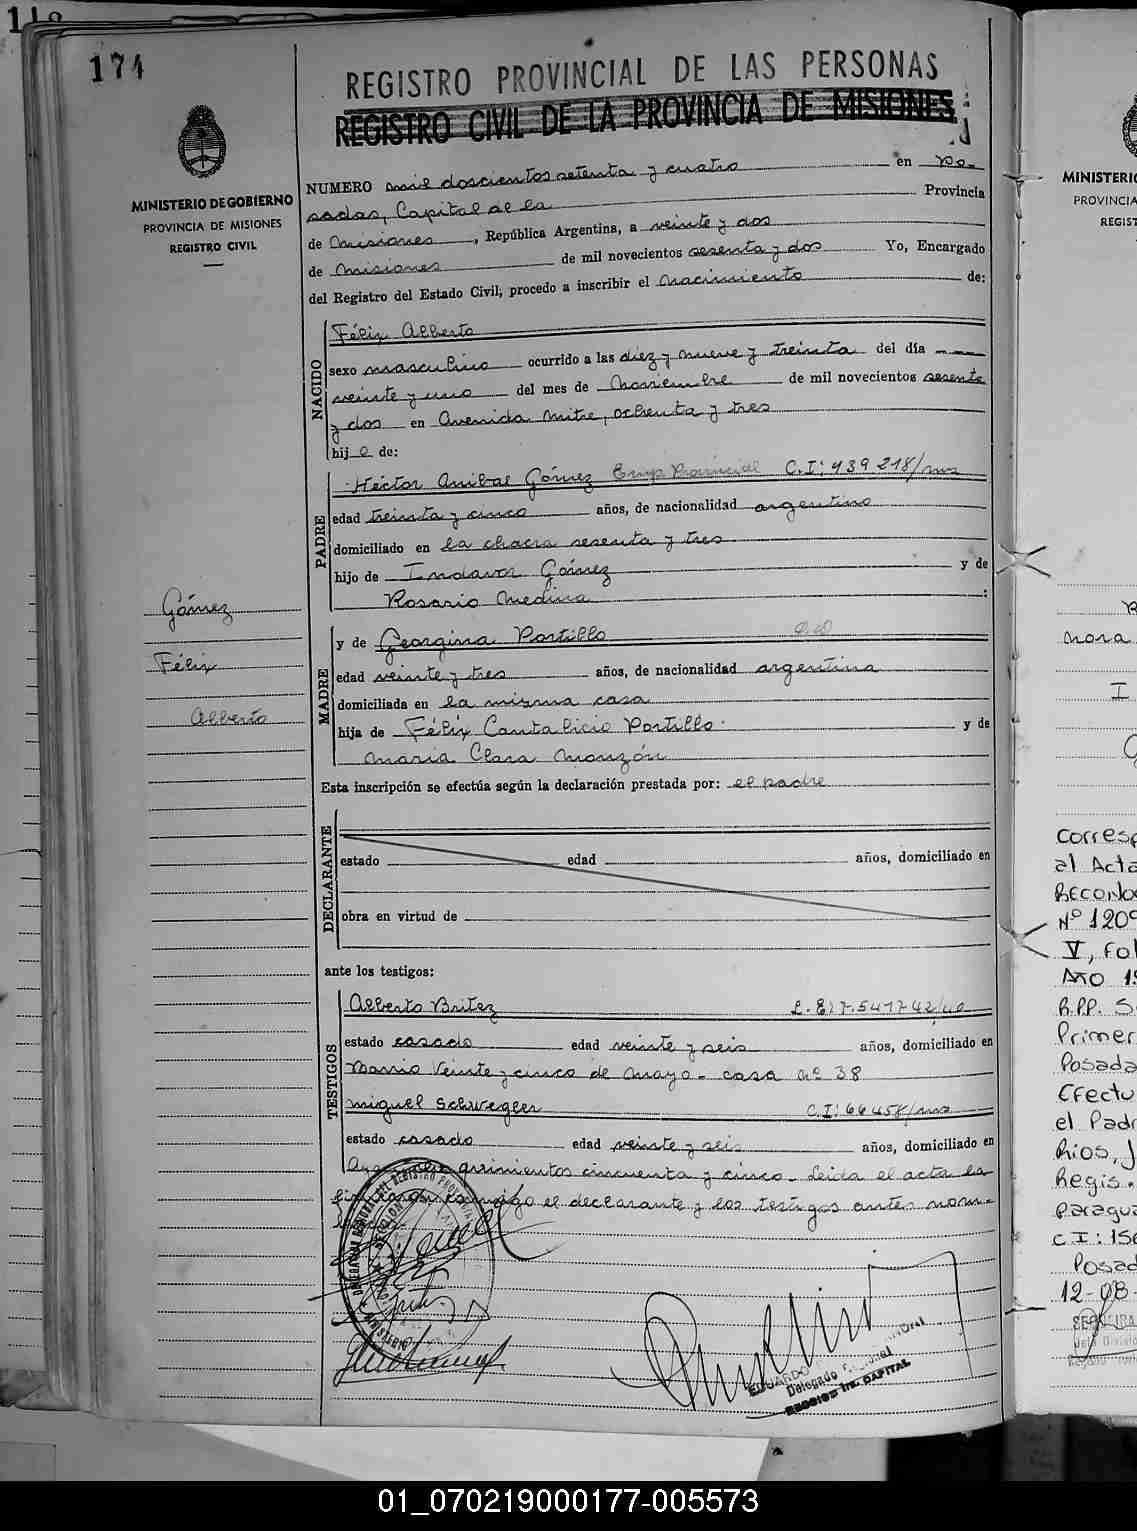 174
REGISTRO PROVINCIAL DE LAS PERSONAS
REGISTRO CIVIL DE LA PROVINCIA DE MISIONES
MINISTERIO DE GOBIERNO
PROVINCIA DE MISIONES
REGISTRO CIVIL
NUMERO mil doscientos setenta y cuatro en Po-
sadas, Capital de la Provincia
de Misiones, República Argentina, a veinte y dos
de Misiones de mil novecientos sesenta y dos Yo, Encargado
del Registro del Estado Civil, procedo a inscribir el nacimiento de:
NACIDO
Félix Alberto
sexo masculino ocurrido a las diez y nueve y treinta del día
veinte y uno del mes de Noviembre de mil novecientos sesenta
y dos en Avenida Mitre, ochenta y tres
hij o de:
PADRE
Héctor Anibal Gómez Emp. Provincial C.I: 439.218/mns
edad treinta y cinco años, de nacionalidad argentino
domiciliado en la chacra sesenta y tres
hijo de Gómez y de
Rosario Medina :
MADRE
y de Georgina Portillo
edad veinte y tres años, de nacionalidad argentina
domiciliada en la misma casa
hija de Félix Cantalicio Portillo y de
Maria Clara Monzón
Esta inscripción se efectúa según la declaración prestada por: el padre
DECLARANTE
estado edad años, domiciliado en
obra en virtud de
ante los testigos:
TESTIGOS
Alberto Britez L.E: 7.547742
estado casado edad veinte y seis años, domiciliado en
Barrio Veinte y cinco de Mayo - casa nº 38
Miguel Schwegler C.I: 66458/mns
estado casado edad veinte y seis años, domiciliado en
quinientos cincuenta y cinco - Leida el acta la
conmigo el declarante y los testigos antes nom-
Gómez
Félix
Alberto
EDUARDO
Delegado Regional
CAPITAL
MINISTERIO
PROVINCIA
REGIST
Corresp
al Acta
Recono
Nº 1209
V, Fol
Año 19
R.P.P. S
Primer
Posada
Efectu
el Padr
Rios, J
Regis.
Paragua
C.I: 156
Posad
12-08-
01_070219000177-005573